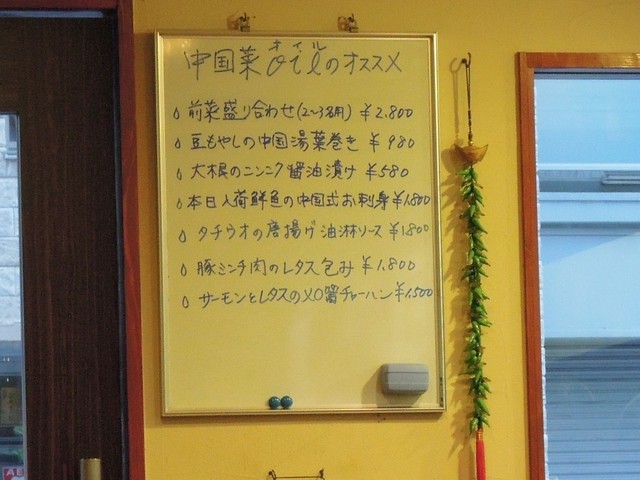 オイル
中国菜oilのオススメ
前菜盛り合わせ(2〜3名用) ¥2.800
豆もやしの中国湯葉巻き ¥980
大根のニンニク醤油漬け ¥580
本日入荷鮮魚の中国式お刺身 ¥1.800
タチウオの唐揚げ油淋ソース ¥1.800
豚ミンチ肉のレタス包み ¥1.800
サーモンとレタスのXO醤チャーハン ¥1,500
AE